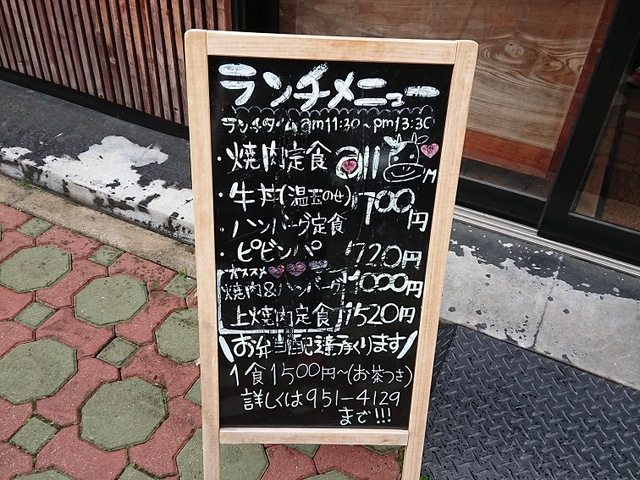 ランチメニュー
ランチタイム am11:30~pm13:30
・焼肉定食 all
・牛丼(温玉のせ) 700円
・ハンバーグ定食
・ビビンバ 720円
オススメ
焼肉&ハンバーグ 1000円
上焼肉定食 1520円
\お弁当配達承ります/
1食1500円~(お茶つき)
詳しくは951-4129
まで!!!